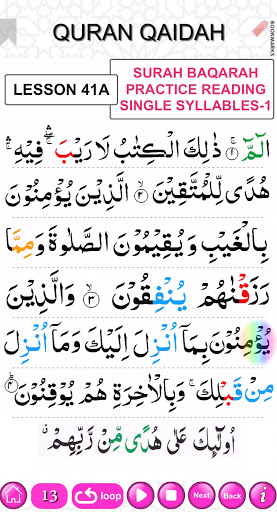 QURAN QAIDAH
BOOKMARKS
LESSON 41A
SURAH BAQARAH
PRACTICE READING
SINGLE SYLLABLES-1
الٓمّٓ ۚ﴿۱﴾ ذٰلِكَ الْكِتٰبُ لَا رَيْبَ ۛۖ فِيْهِ ۛۚ
هُدًى لِّلْمُتَّقِيْنَ ﴿۲﴾ الَّذِيْنَ يُؤْمِنُوْنَ
بِالْغَيْبِ وَ يُقِيْمُوْنَ الصَّلٰوةَ وَ مِمَّا
رَزَقْنٰهُمْ يُنْفِقُوْنَ ﴿۳﴾ وَالَّذِيْنَ
يُؤْمِنُوْنَ بِمَاۤ اُنْزِلَ اِلَيْكَ وَمَاۤ اُنْزِلَ
مِنْ قَبْلِكَ ۚ وَبِالْاٰخِرَةِ هُمْ يُوْقِنُوْنَ ﴿۴﴾
اُولٰٓئِكَ عَلٰى هُدًى مِّنْ رَّبِّهِمْ ۗ
13 loop Next Back i